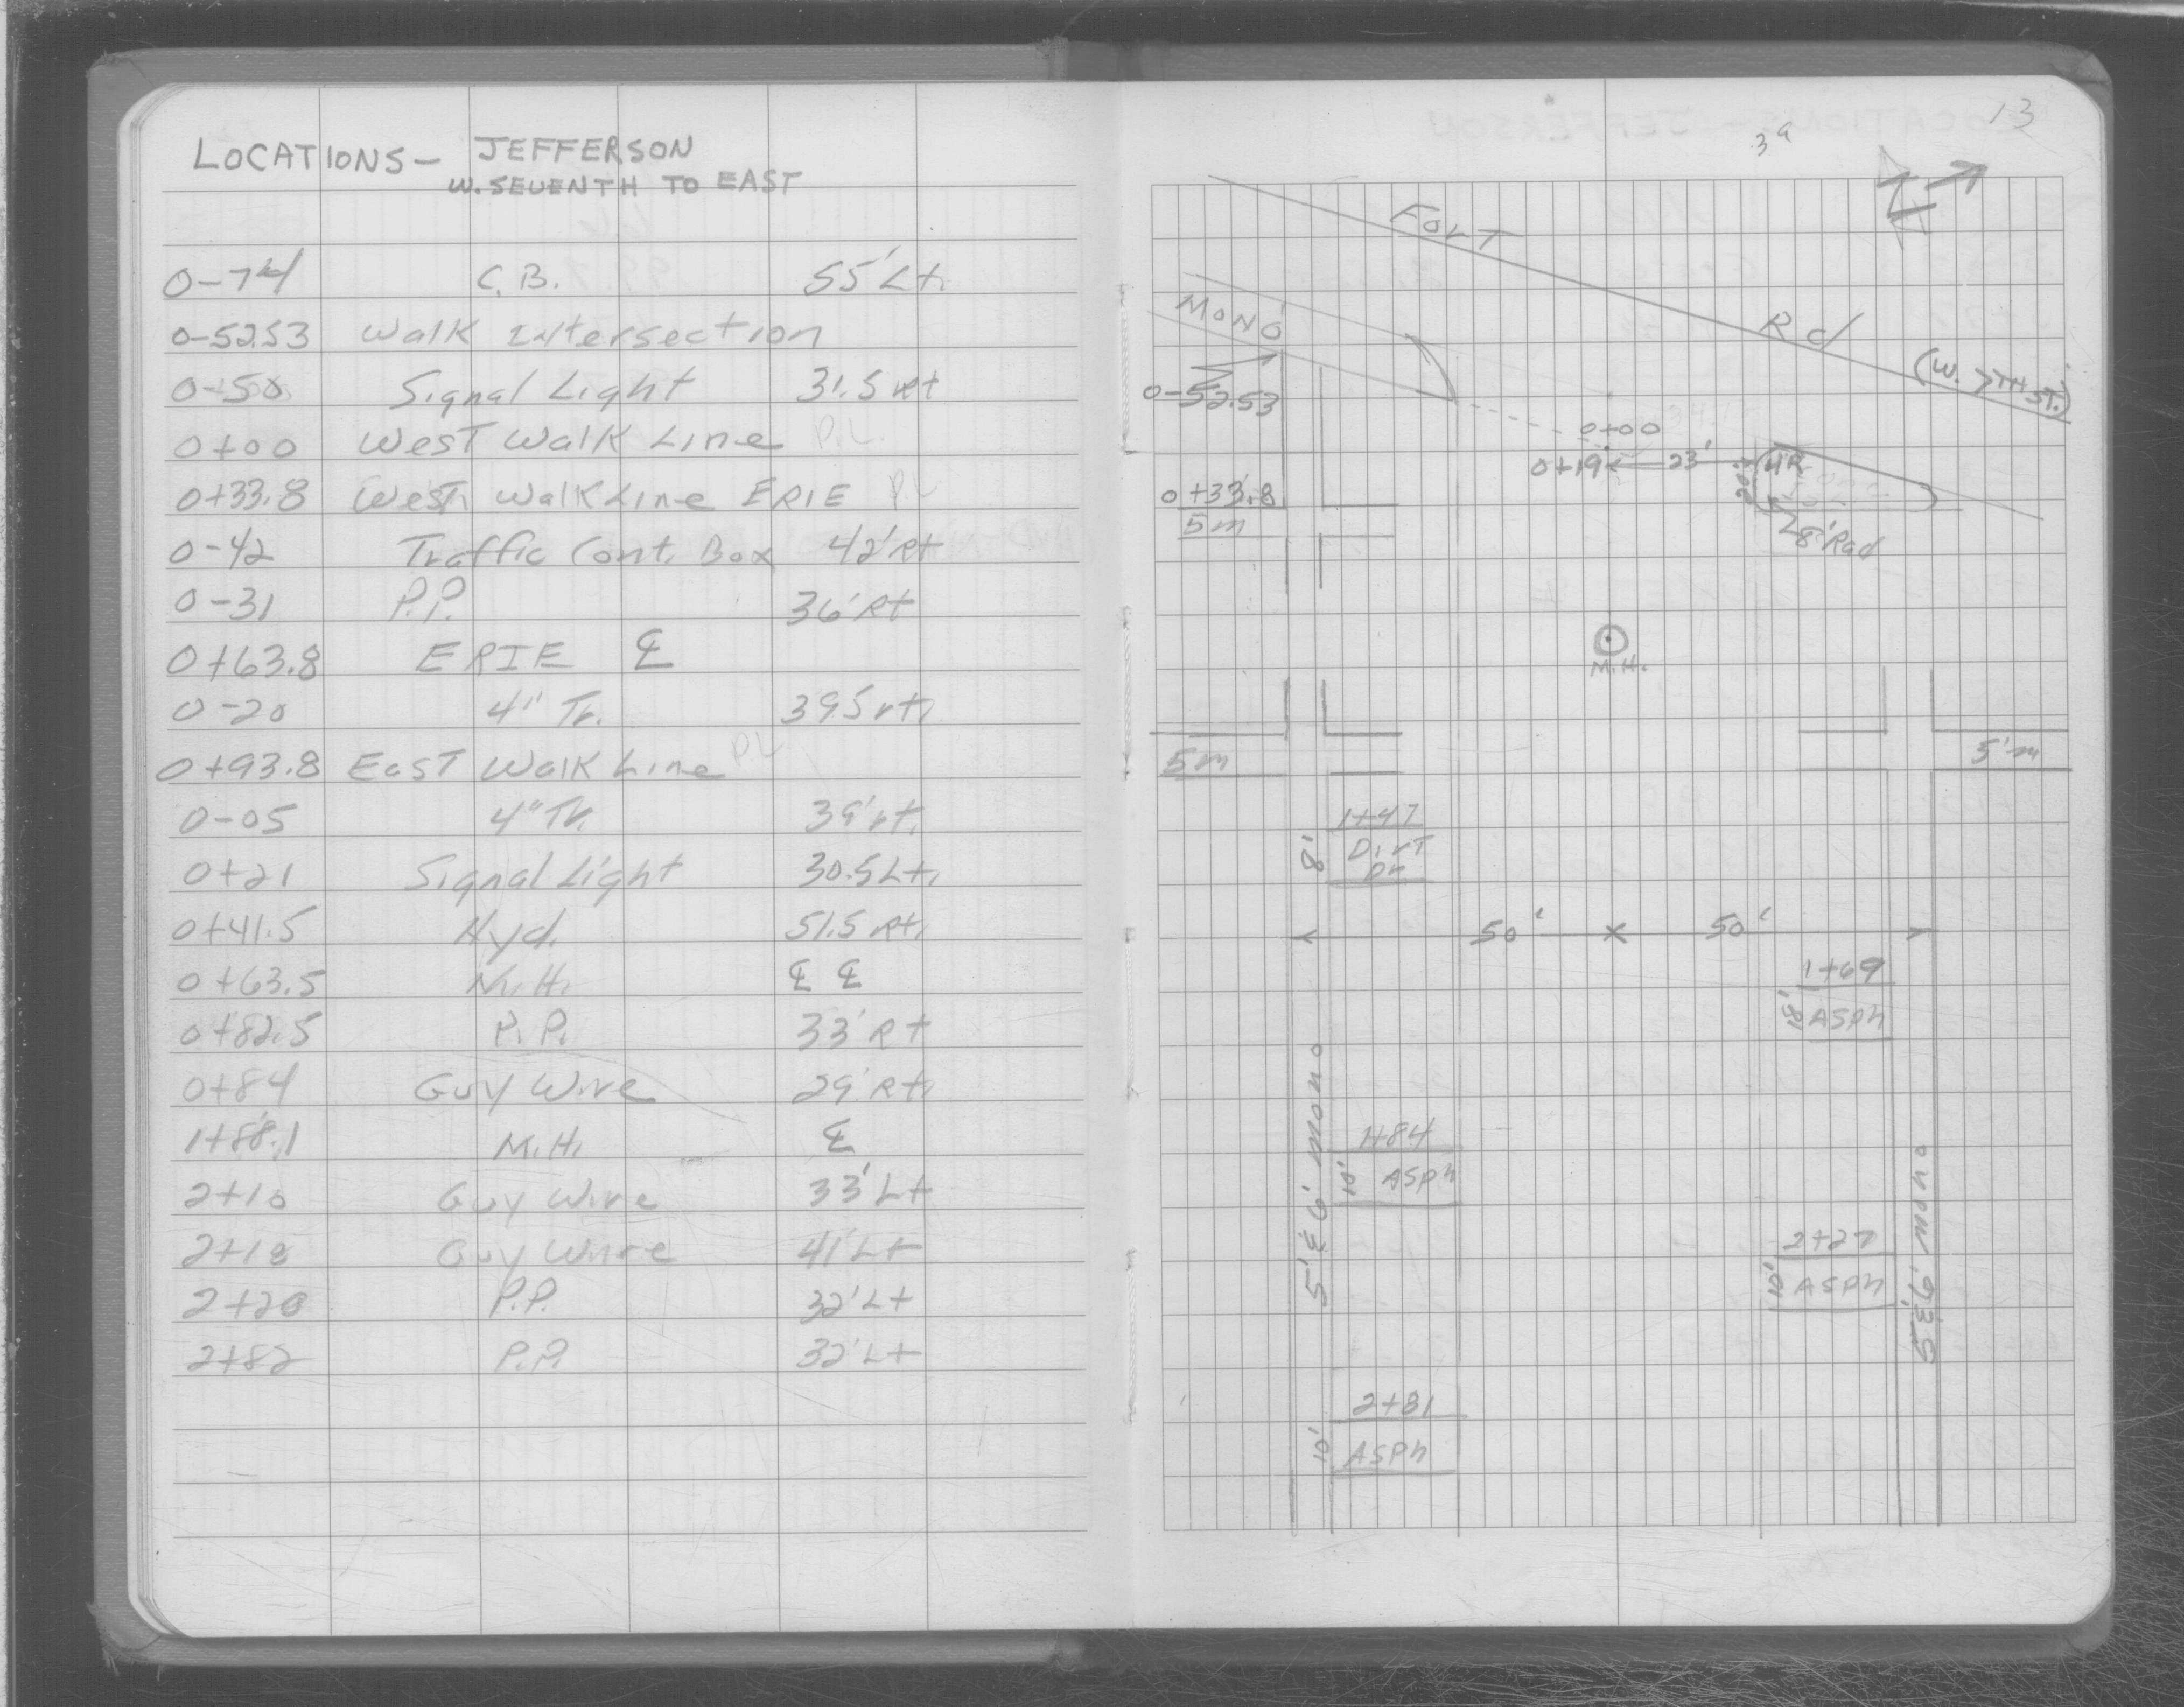 LOCATIONS – JEFFERSON
W. SEVENTH TO EAST
0-74 C.B. 55' Lt.
0-52.53 Walk Intersection
0-50 Signal Light 31.5 Rt
0+00 West Walk Line P.L.
0+33.8 West Walk Line ERIE P.L
0-42 Traffic Cont. Box 42' Rt
0-31 P.P. 36' Rt
0+63.8 ERIE ℄
0-20 4" Tr. 39.5 rt.
0+93.8 East Walk Line P.L
0-05 4" Tr. 39' rt.
0+21 Signal Light 30.5 Lt.
0+41.5 Hyd. 51.5 Rt.
0+63.5 M.H. ℄ ℄
0+82.5 P.P. 33' Rt
0+84 Guy Wire 29' Rt.
1+88.1 M.H. ℄
2+10 Guy Wire 33' Lt
2+18 Guy Wire 41' Lt
2+20 P.P. 32' Lt
2+82 P.P. 32' Lt
13
Fort Rd (W. 7TH ST.)
MONO
0-52.53
0+00
0+19 23' 4'R
20'
0+33.8
5m
8' Rad
M.H.
5m
5'm
1+47
8' Dirt
Dr
50' 50'
1+69
18' ASPh
5' & 6' mono
1+84
10' ASPh
2+27
10' ASPh
5' & 6' mono
2+31
10' ASPh